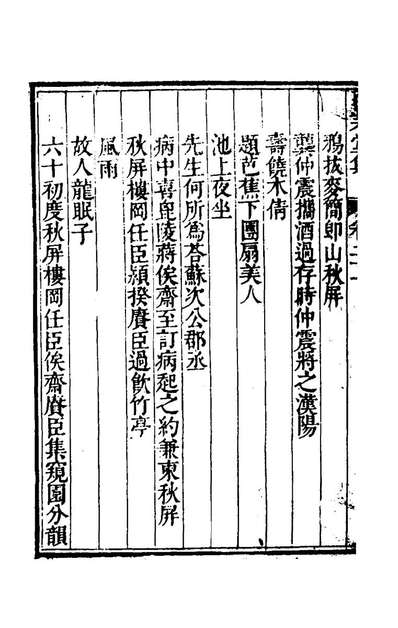 鴉拔麥簡即山秋屏
龔仲震攜酒過存時仲震將之漢陽
壽饒木倩
題芭蕉下團扇美人
池上夜坐
先生何所爲荅蘇次公郡丞
病中喜毘陵蔣俟齋至訂病起之約兼柬秋屏
秋屏樓岡任臣潁揆賡臣過飲竹亭
風雨
故人龍眠子
六十初度秋屏樓岡任臣俟齋賡臣集窺園分韻